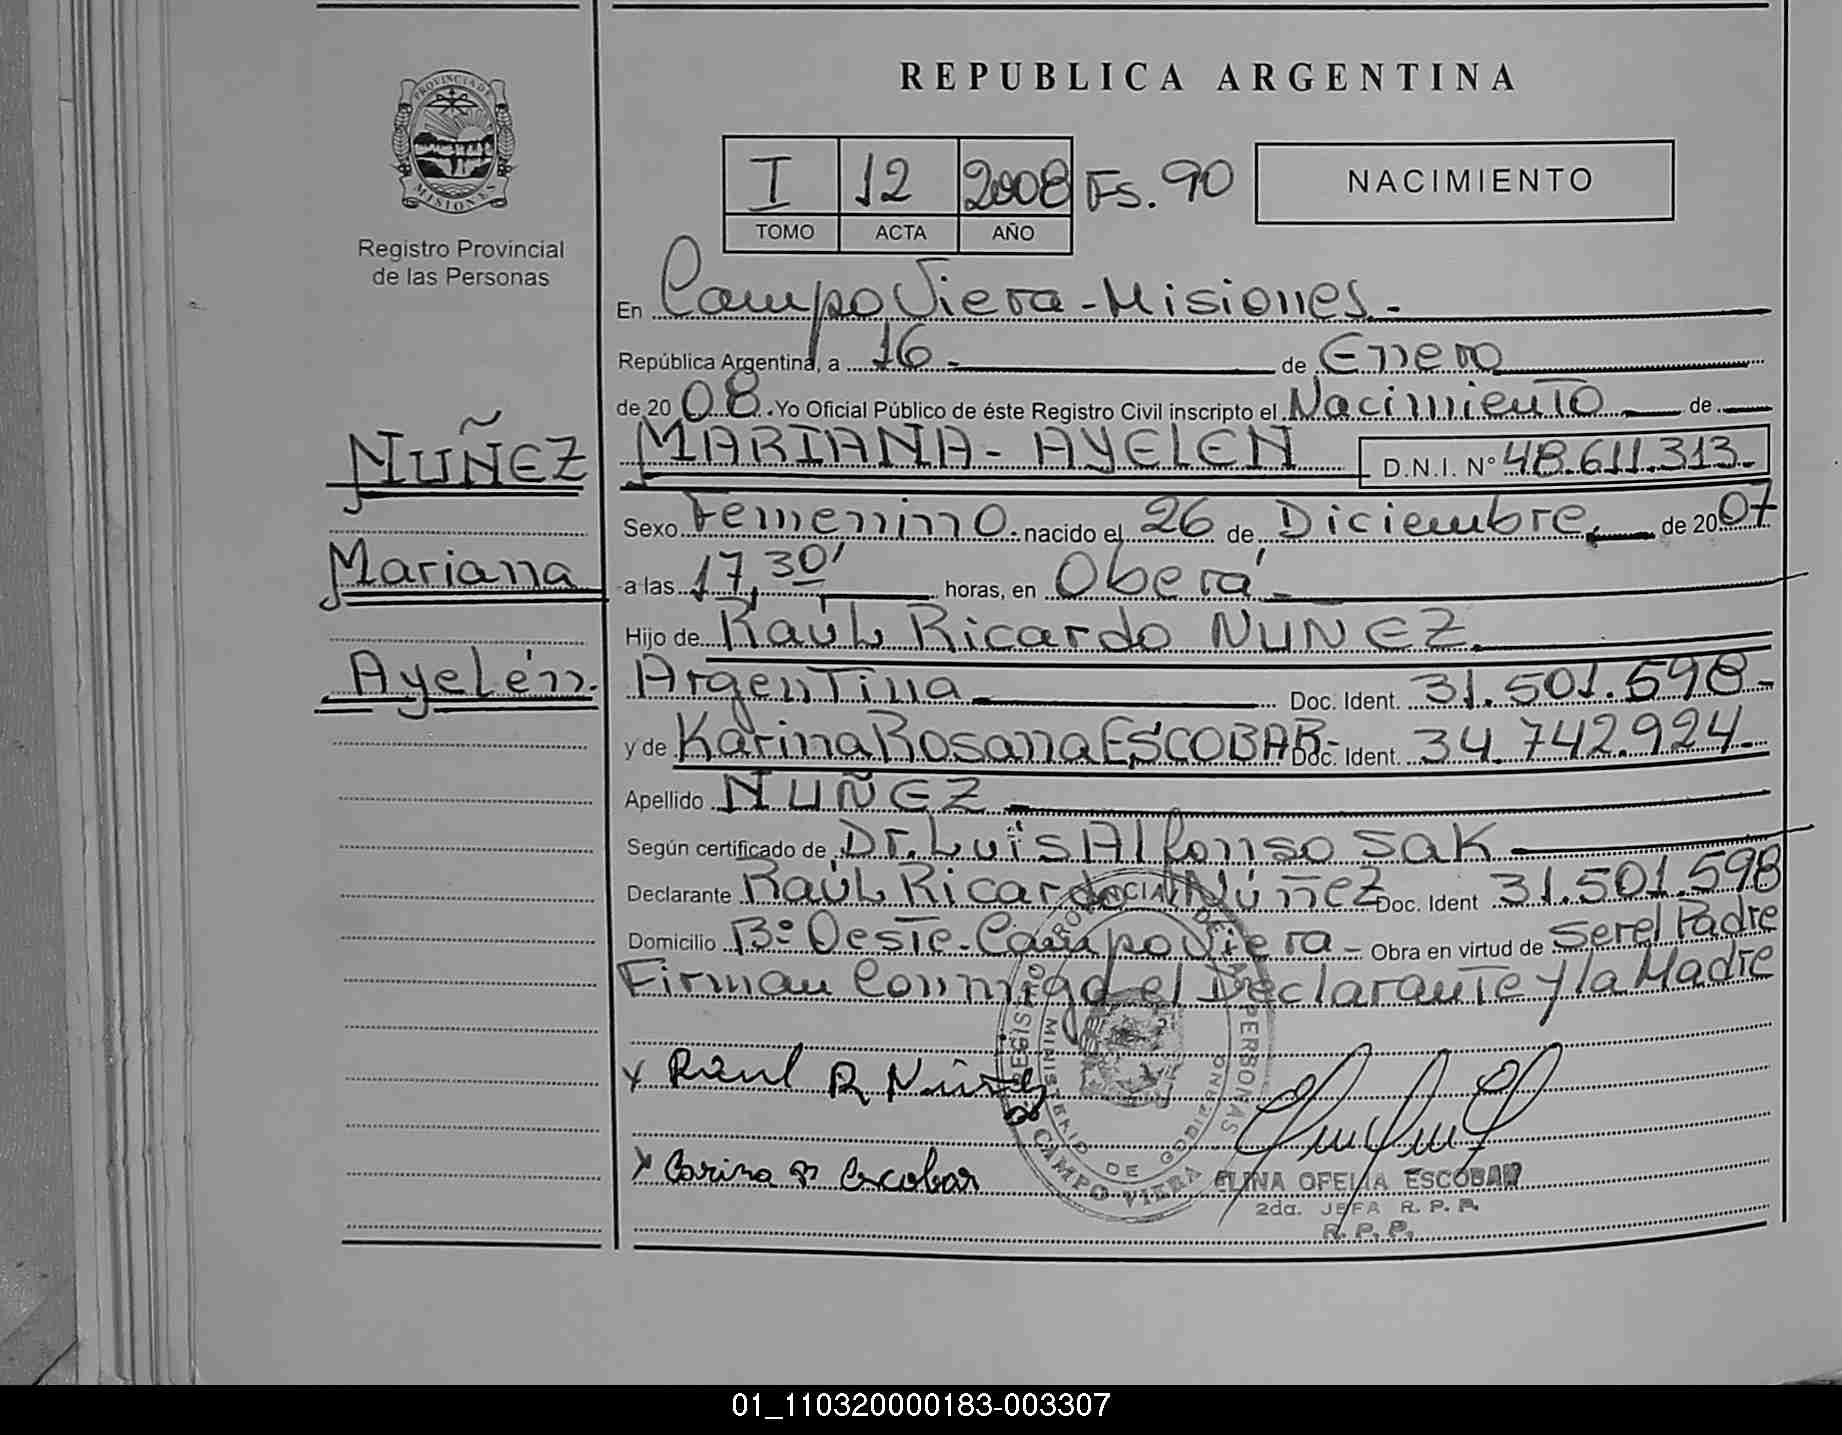 REPUBLICA ARGENTINA
PROVINCIA DE
MISIONES
Registro Provincial
de las Personas
I 12 2008 Fs. 90
TOMO ACTA AÑO
NACIMIENTO
En Campo Viera - Misiones. -
República Argentina, a 16 - de Enero
de 2008. Yo Oficial Público de éste Registro Civil inscripto el Nacimiento de
NUÑEZ
Mariana
Ayelén.
MARIANA - AYELEN D.N.I. N° 48.611.313.-
Sexo Femenino. nacido el 26 de Diciembre. de 2007
a las 17,30' horas, en Oberá -
Hijo de Raúl Ricardo NUNEZ.
Argentina Doc. Ident. 31.501.598-
y de Karina Rosana ESCOBAR- Doc. Ident. 34.742.924.-
Apellido NUÑEZ -
Según certificado de Dr. Luis Alfonso Sak
Declarante Raúl Ricardo Núñez Doc. Ident 31.501.598
Domicilio B° Oeste - Campo Viera - Obra en virtud de Ser el Padre
Firman Conmigo el Declarante y la Madre
x Raul R Núñez
x Carina R Escobar
REGISTRO PROVINCIAL DE LAS PERSONAS
MINISTERIO DE GOBIERNO
CAMPO VIERA
ELINA OFELIA ESCOBAR
2da. JEFA R. P. P.
R. P. P.
01_110320000183-003307